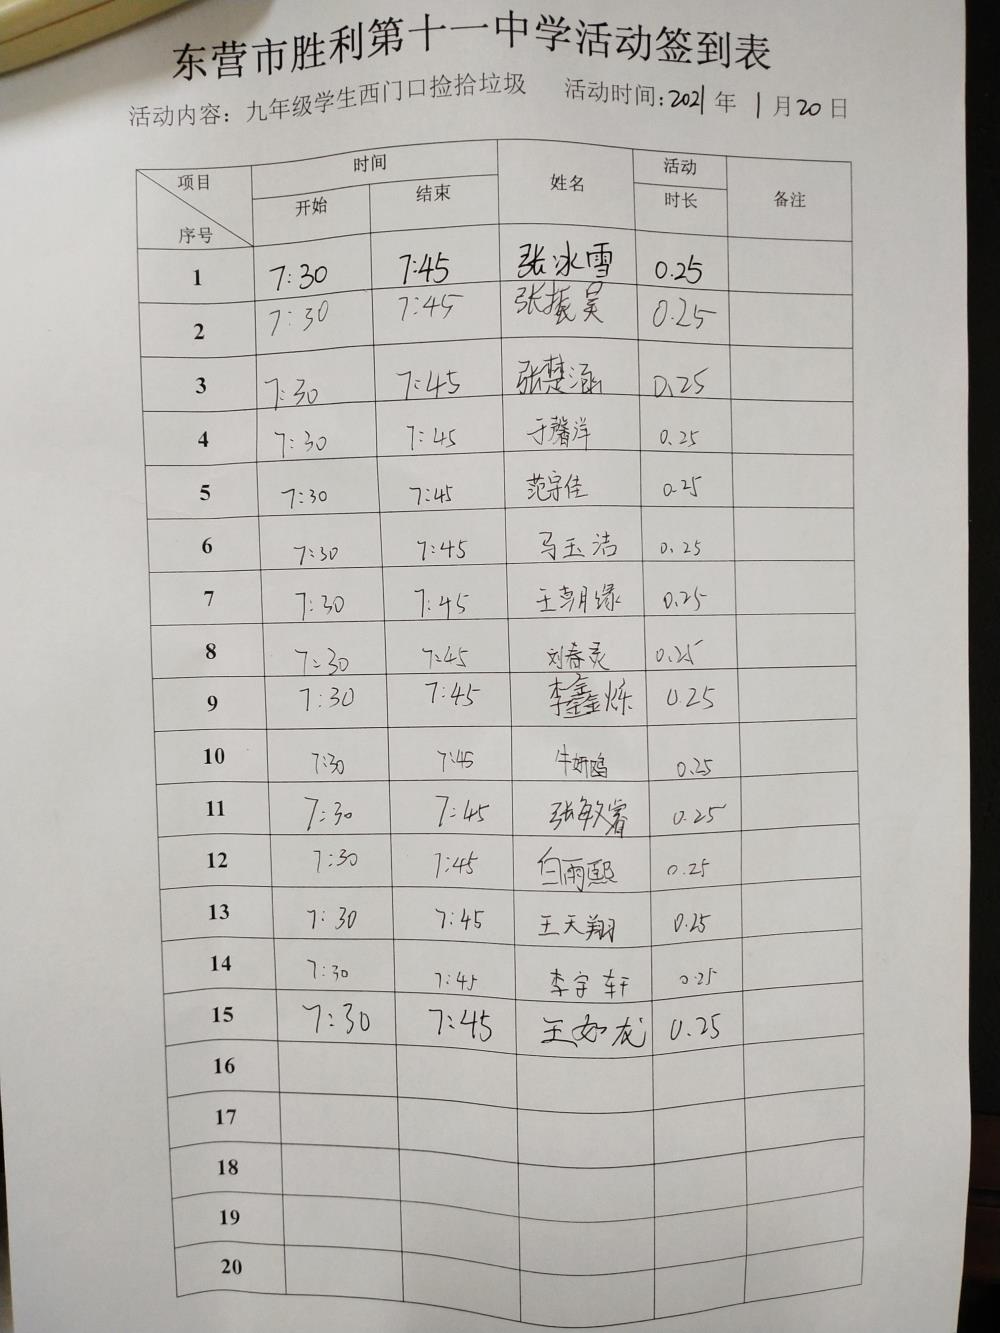 东营市胜利第十一中学活动签到表
活动内容：九年级学生西门口捡拾垃圾 活动时间：2021年 1月20日
项目 序号 时间 姓名 活动 备注
开始 结束 时长
1 7:30 7:45 张冰雪 0.25
2 7:30 7:45 张振昊 0.25
3 7:30 7:45 张楚涵 0.25
4 7:30 7:45 于馨洋 0.25
5 7:30 7:45 范宗佳 0.25
6 7:30 7:45 马玉洁 0.25
7 7:30 7:45 王朝缘 0.25
8 7:30 7:45 刘春灵 0.25
9 7:30 7:45 李鑫烁 0.25
10 7:30 7:45 0.25
11 7:30 7:45 张敏睿 0.25
12 7:30 7:45 白雨熙 0.25
13 7:30 7:45 王天翔 0.25
14 7:30 7:45 李宇轩 0.25
15 7:30 7:45 王如龙 0.25
16
17
18
19
20